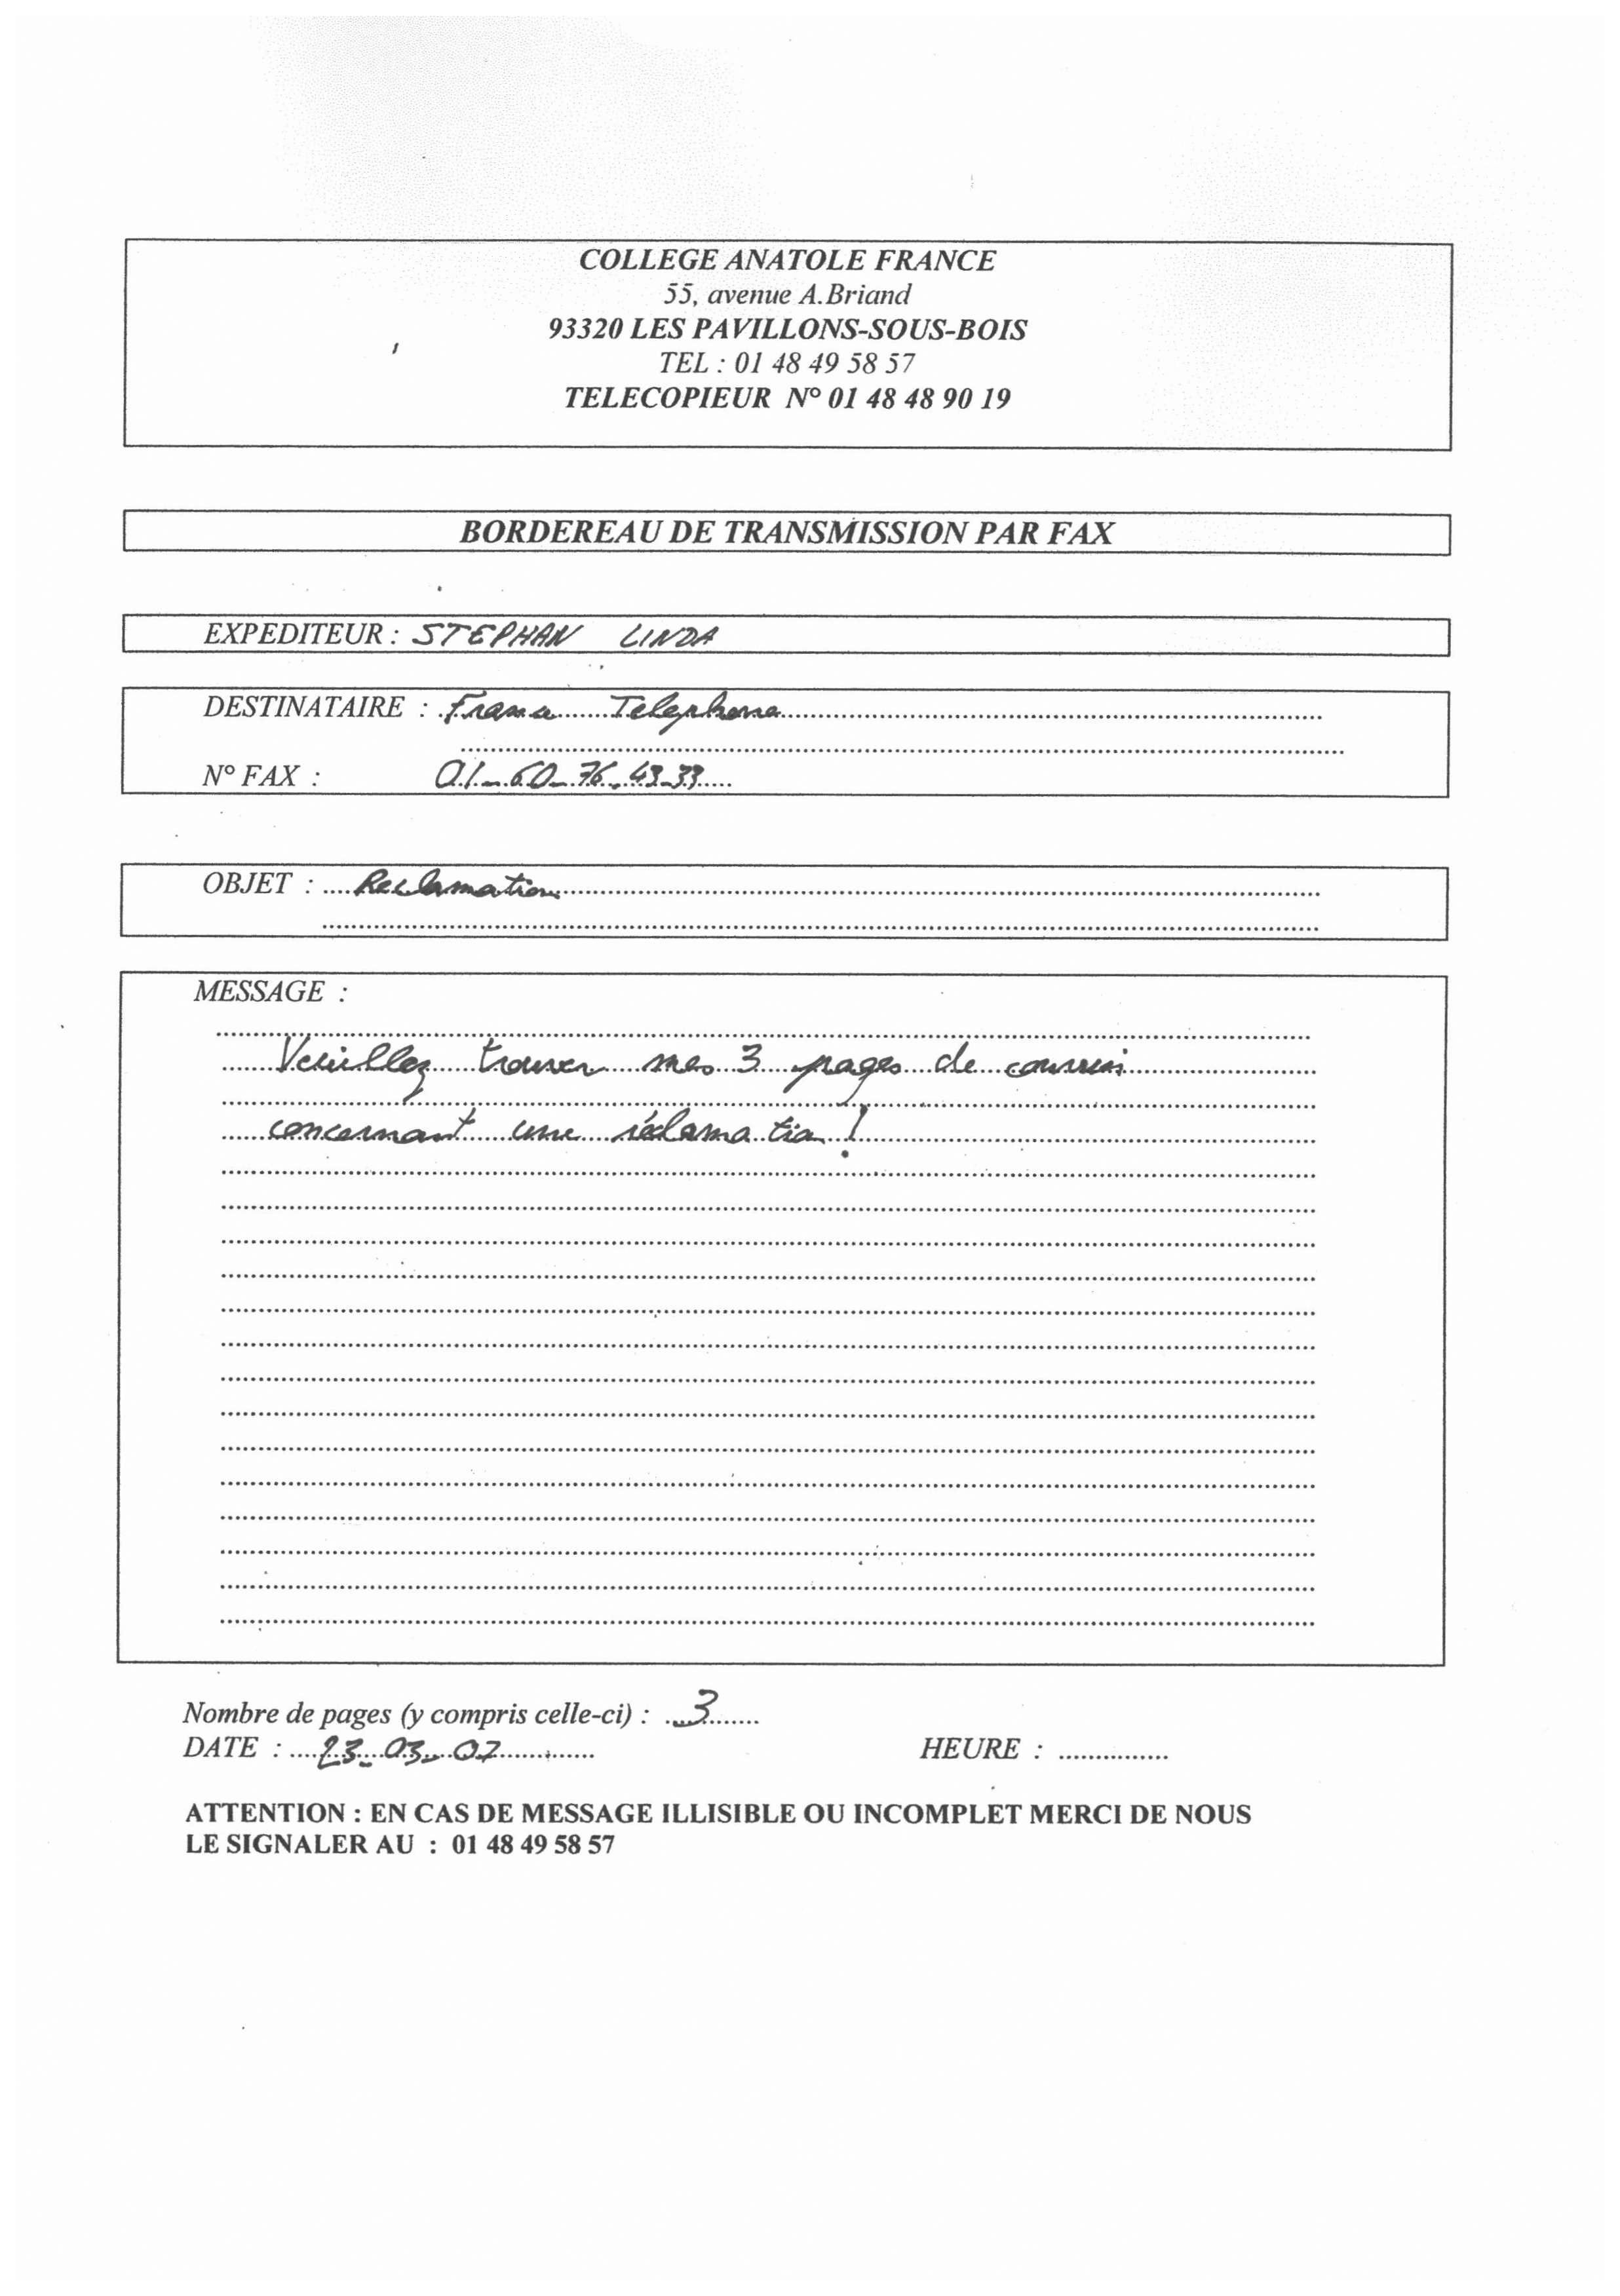 COLLEGE ANATOLE FRANCE
55, avenue A.Briand
93320 LES PAVILLONS-SOUS-BOIS
TEL : 01 48 49 58 57
TELECOPIEUR N° 01 48 48 90 19
BORDEREAU DE TRANSMISSION PAR FAX
EXPEDITEUR : STEPHAN LINDA
DESTINATAIRE : France Telephone
N° FAX : 01-60-76-43-33
OBJET : Reclamation
MESSAGE :
Veuillez trouver mes 3 pages de courrier
concernant une réclamation !
Nombre de pages (y compris celle-ci) : 3
DATE : 23-03-07 HEURE :
ATTENTION : EN CAS DE MESSAGE ILLISIBLE OU INCOMPLET MERCI DE NOUS
LE SIGNALER AU : 01 48 49 58 57